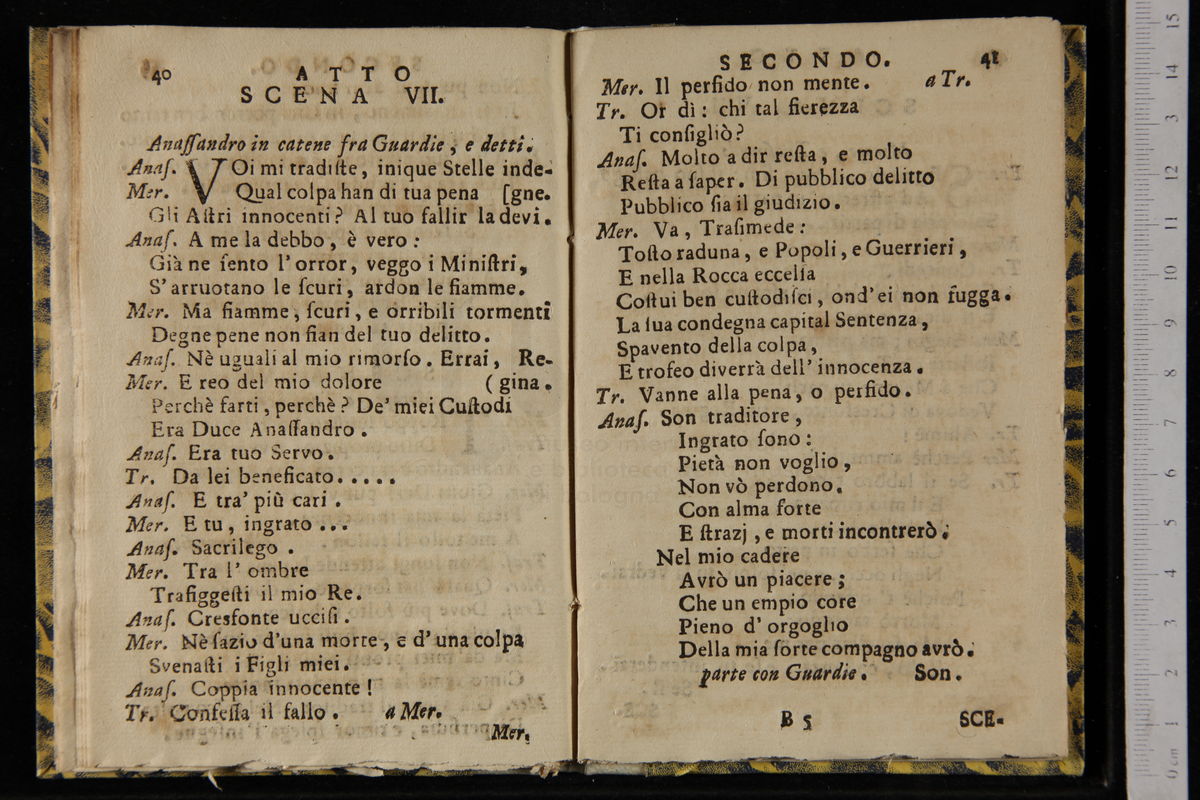 40 ATTO
SCENA VII.
Anaſſandro in catene fra Guardie, e detti.
Anaſ. VOi mi tradiſte, inique Stelle inde-
Mer. Qual colpa han di tua pena [gne.
Gli Aſtri innocenti? Al tuo fallir la devi.
Anaſ. A me la debbo, è vero:
Già ne ſento l'orror, veggo i Miniſtri,
S'arruotano le ſcuri, ardon le fiamme.
Mer. Ma fiamme, ſcuri, e orribili tormenti
Degne pene non fian del tuo delitto.
Anaſ. Nè uguali al mio rimorſo. Errai, Re-
Mer. E reo del mio dolore (gina.
Perchè farti, perchè? De' miei Cuſtodi
Era Duce Anaſſandro.
Anaſ. Era tuo Servo.
Tr. Da lei beneficato.....
Anaſ. E tra' più cari.
Mer. E tu, ingrato...
Anaſ. Sacrilego.
Mer. Tra l' ombre
Trafiggeſti il mio Re.
Anaſ. Cresfonte ucciſi.
Mer. Nè ſazio d'una morte, e d'una colpa
Svenaſti i Figli miei.
Anaſ. Coppia innocente!
Tr. Confeſſa il fallo. a Mer.
Mer.
SECONDO. 41
Mer. Il perfido non mente. a Tr.
Tr. Or dì: chi tal fierezza
Ti conſigliò?
Anaſ. Molto a dir reſta, e molto
Reſta a ſaper. Di pubblico delitto
Pubblico ſia il giudizio.
Mer. Va, Traſimede:
Toſto raduna, e Popoli, e Guerrieri,
E nella Rocca eccelſa
Coſtui ben cuſtodiſci, ond'ei non fugga.
La ſua condegna capital Sentenza,
Spavento della colpa,
E trofeo diverrà dell' innocenza.
Tr. Vanne alla pena, o perfido.
Anaſ. Son traditore,
Ingrato ſono:
Pietà non voglio,
Non vò perdono.
Con alma forte
E ſtrazj, e morti incontrerò.
Nel mio cadere
Avrò un piacere;
Che un empio core
Pieno d' orgoglio
Della mia ſorte compagno avrò.
parte con Guardie. Son.
B 5 SCE-